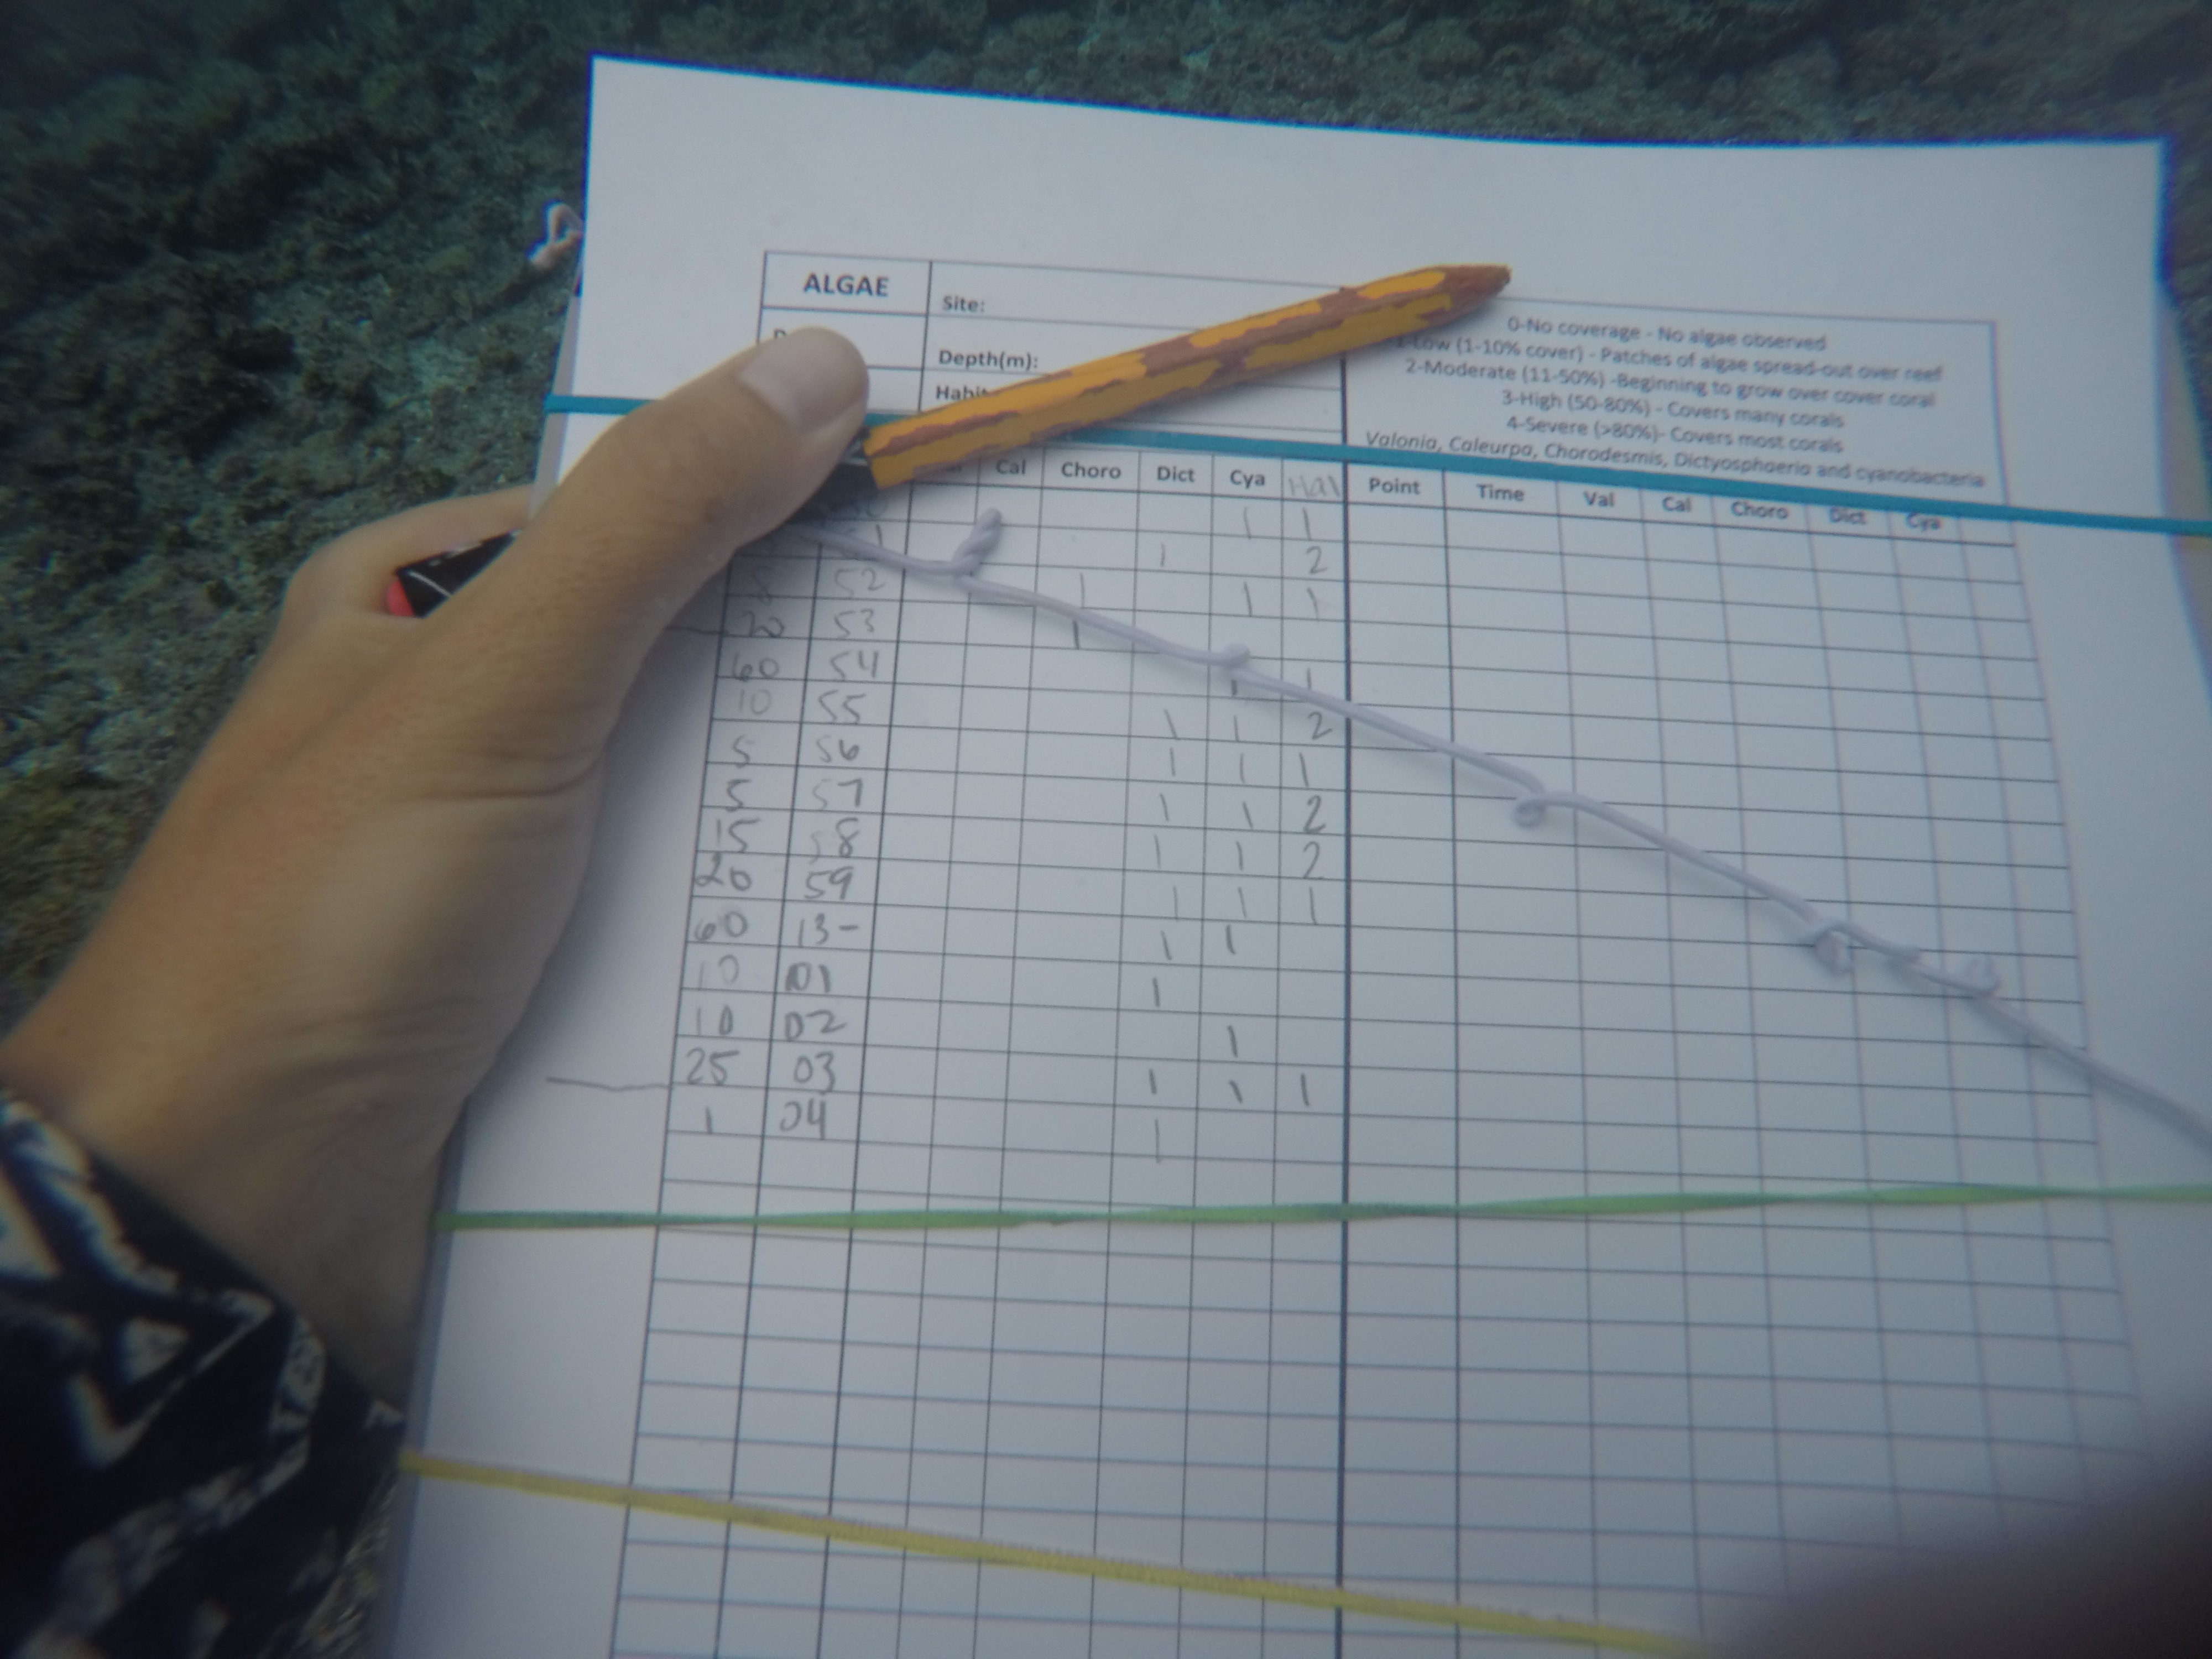 ALGAE
Site:
Depth(m):
0-No coverage - No algae observed
(1-10% cover) - Patches of algae spread-out over reef
2-Moderate (11-50%) -Beginning to grow over cover coral
3-High (50-80%) - Covers many corals
4-Severe (>80%)- Covers most corals
Valonia, Caleurpa, Chorodesmis, Dictyosphaeria and cyanobacteria
Cal Choro Dict Cya Hal Point Time Val Cal Choro Dict Cya
1 1
1 2
8 52 1 1 1
20 53 1
60 54 1 1
10 55 1 1 2
5 56 1 1 1
5 57 1 1 2
15 58 1 1 2
20 59 1 1 1
60 13- 1 1
10 01 1
10 02 1
25 03 1 1 1
1 04 1